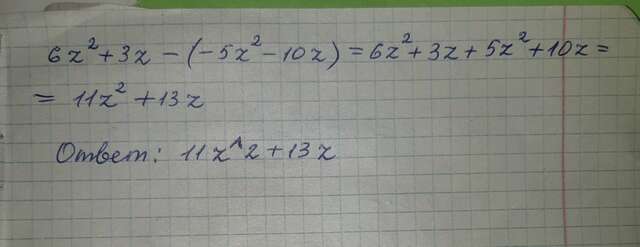 6z²+3z-(-5z²-10z)=6z²+3z+5z²+10z=
= 11z²+13z
Ответ: 11z^2+13z